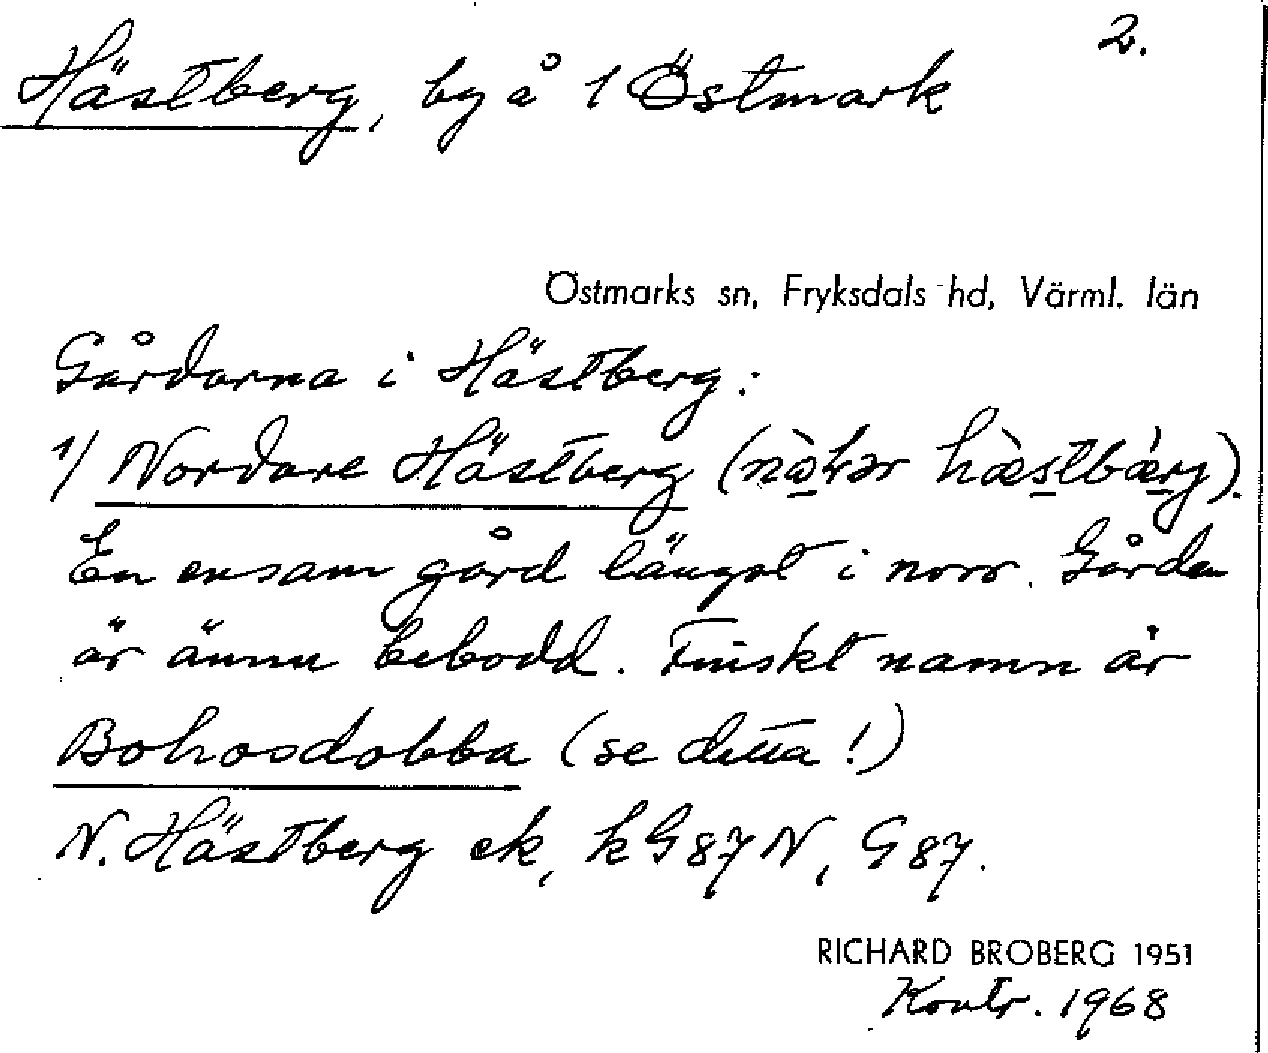 2.
Hästberg, by å 1 Östmark
Östmarks sn, Fryksdals hd, Värml. län
Gårdarna i Hästberg:
1/ Nordare Hästberg
En ensam gård längst i norr. Gården
är ännu bebodd. Finskt namn är
Bohosdobba (se detta!)
N. Hästberg ek, k G87N, G87.
RICHARD BROBERG 1951
Kontr. 1968